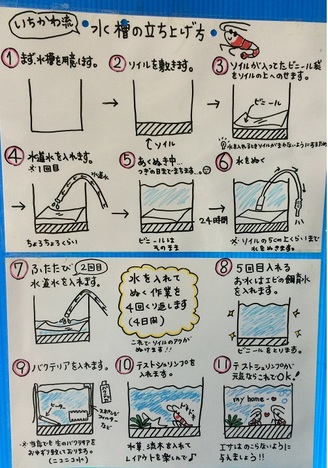 いちかわ流
水槽の立ち上げ方
① まず、水槽を用意します。
② ソイルを敷きます。
↑ソイル
③ ソイルが入ってたビニール袋
をソイルの上へのせます。
ビニール
④ 水道水を入れます。
※1回目
水道水
ちょろちょろくらい
⑤ あくぬき中…
つぎの日までまちます…
ビニールは
そのまま
24時間
⑥ 水をぬく
※ソイルの5cm上くらいまで
水をぬきます。
⑦ ふたたび 2回目
水道水を入れます。
水を入れて
ぬく作業を
4回くり返します
(4日間)
これでソイルのアクが
ぬけます!!
⑧ 5回目入れる
お水はエビの飼育水
を入れます。
ビニールをとります。
⑨ バクテリアを入れます。
ヒーター
スポンジ
フィルター
など
※当店では生のバクテリアを
おすすめしております。
⑩ テストシュリンプを
入れます。
水草、流木を入れて
レイアウトを楽しんで♪
⑪ テストシュリンプが
元気ならこれでOK!
my home
エサはのこらないように
与えましょう!!